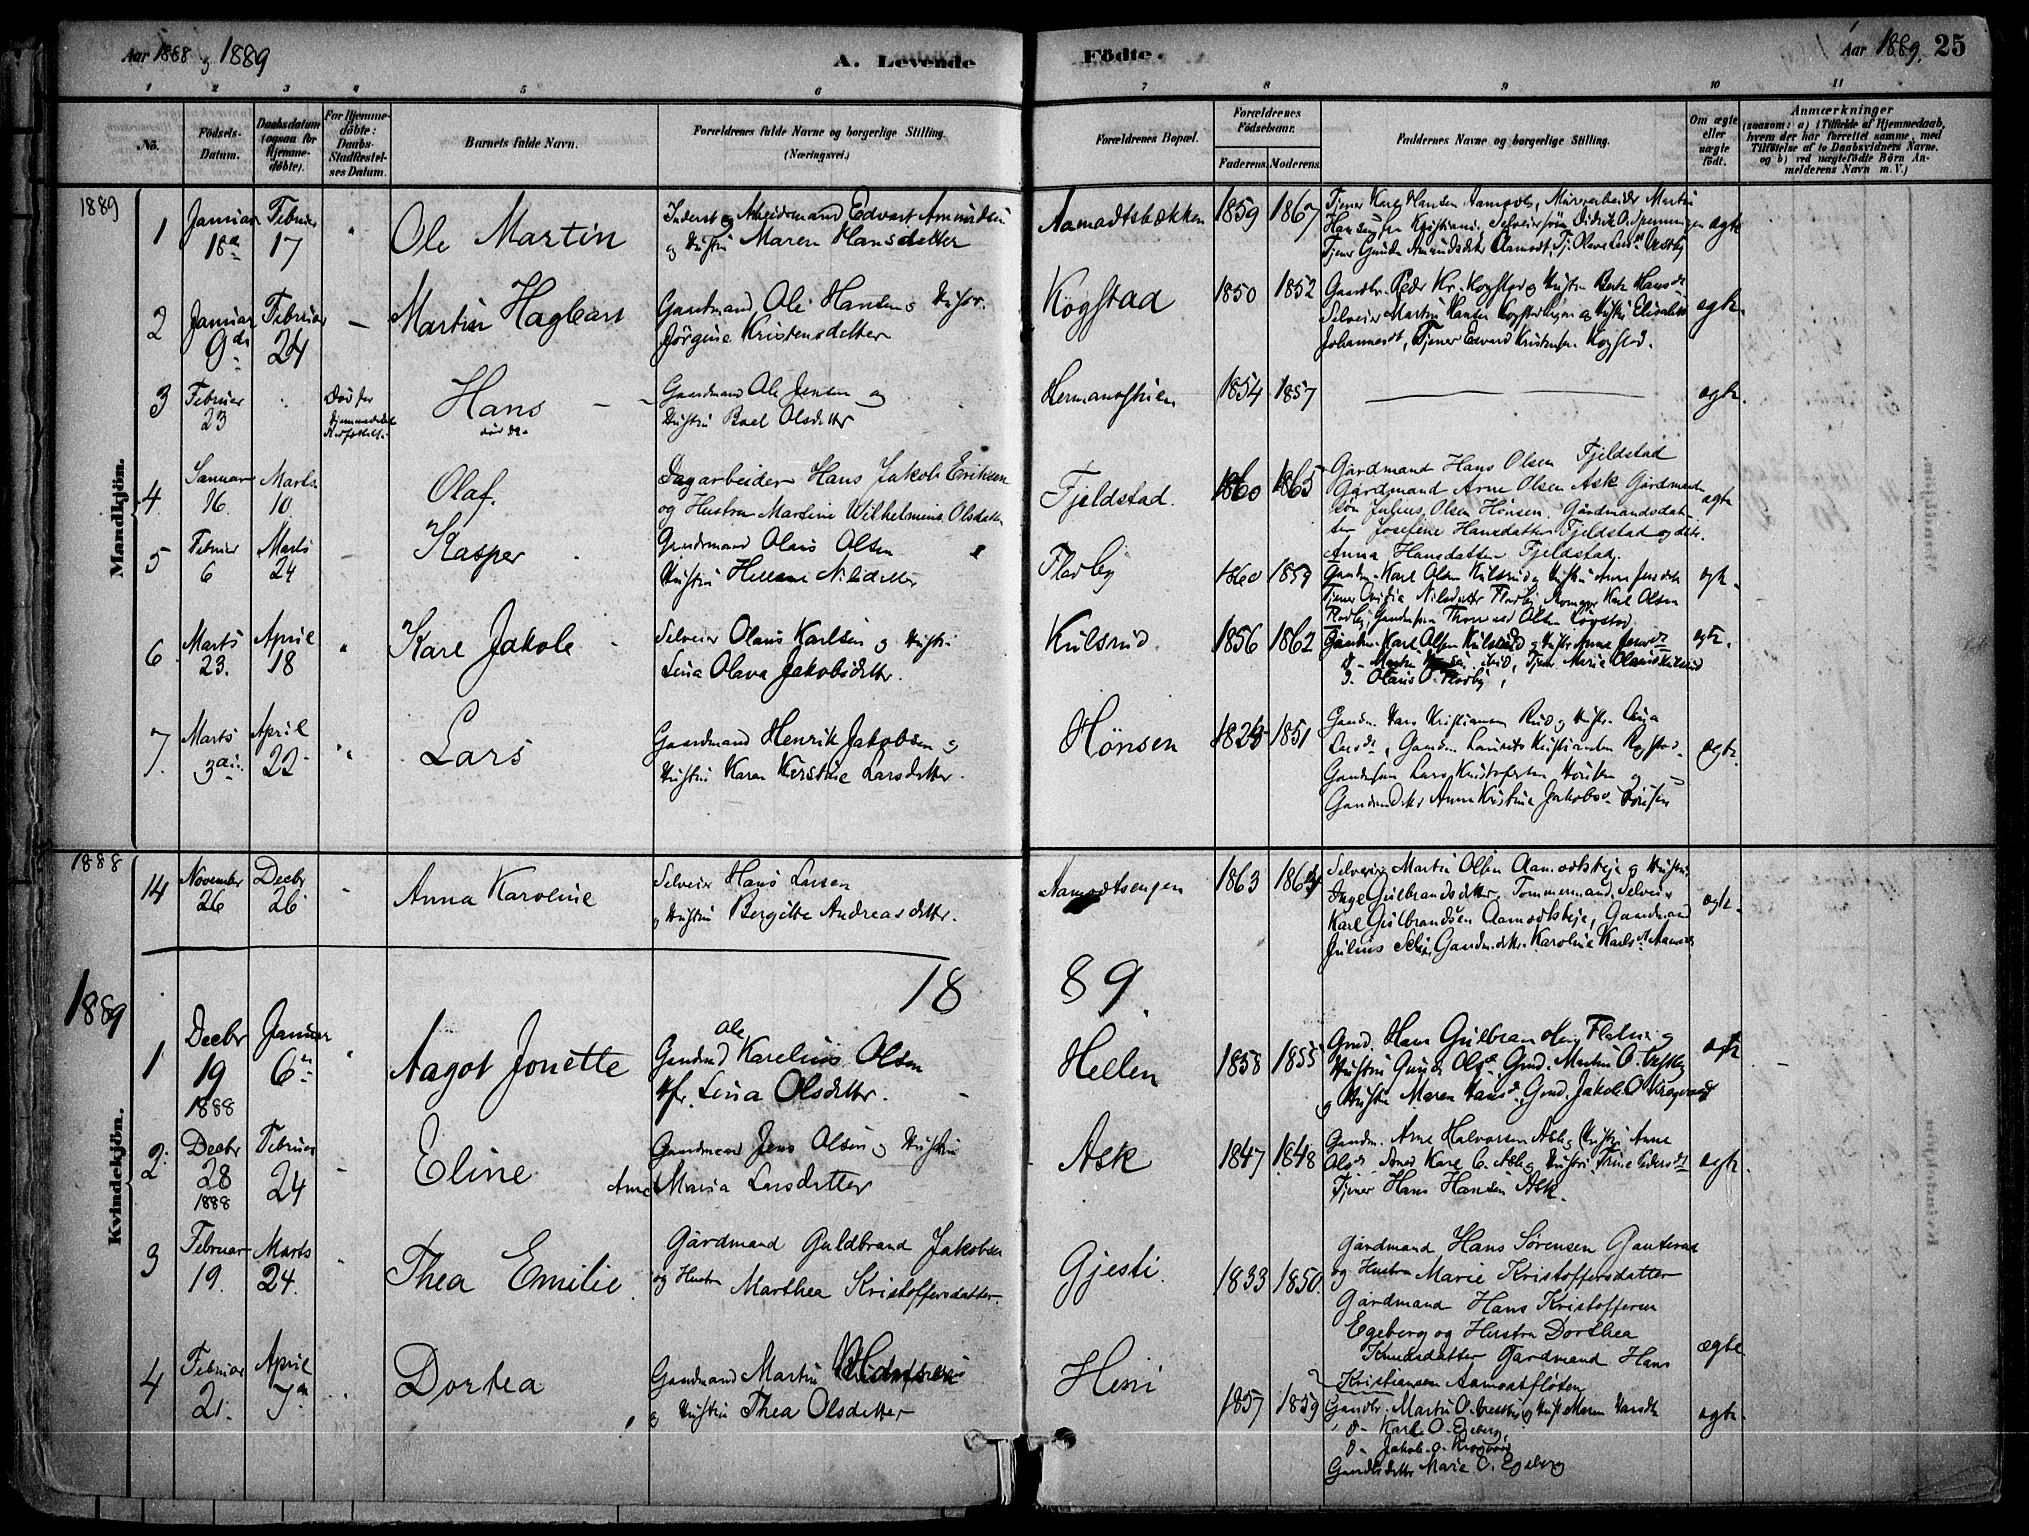 Aar 1888 og 1889
A. Levende
Födte.
Aar 1889. 25
1 2 3 4 5 6 7 8 9 10 11
No.
Födsels-
Datum.
Daabsdatum
(ogsaa for
Hjemme-
döbte).
For Hjemme-
döbte:
Daabs-
Stadfæstel-
ses Datum.
Barnets fulde Navn.
Forældrenes fulde Navne og borgerlige Stilling.
(Næringsvei.)
Forældrenes Bopæl.
Forældrenes
Födselsaar.
Faderens.
Moderens.
Faddernes Navne og borgerlige Stilling.
Om ægte
eller
uægte
födt.
Anmærkninger
(saasom: a) i Tilfælde af Hjemmedaab,
hvem der har forrettet samme, med
Tilföielse af to Daabsvidners Navne.
og b) ved uægtefödte Börn An-
melderens Navn m. V.)
Mandkjön.
1889
1 Januar 18de Februar 17 Ole Martin
Inderst og Arbeidsmand Edvart Amundsen
og Hustru Maren Hansdatter
Aamodtsbækken 1859 1867
Tjener Karl Hansen Aamodt, Murerarbeider Martin
Hansen Kristiania, Selveiersön Didrik O. Spenningen
Tjener Gunda Amundsdatter Aamodt, Tj. Oline Vestby
ægte
2 Januar 9de Februar 24 Martin Hagbart
Gaardmand Ole Hansen og Hustr.
Jörgine Kristensdatter
Kogstad 1850 1852
Gaardbr. Peder Kr. Kogstad og Hustru Berte Hansdt
Selveier Martin Hansen Kogstadeigen og Hustru Elisabeth
Johannesdt, Tjener Edvard Kristensen Kogstad.
ægte.
3 Februar 23 Död før Hjemmedaabs Stadfæstelse
Hans
død
Gaardmand Ole Jensen og
Hustru Boel Olsdatter
Hermanstuen 1854 1857
ægte.
4 Januar 16. Marts 10. Olaf.
Dagarbeider Hans Jakob Eriksen
og Hustru Martine Wilhelmine Olsdatter
Fjeldstad. 1860 1865
Gårdmand Hans Olsen Fjeldstad
Gårdmand Arne Olsen Ask Gårdmand-
sön Julius Olsen Hönsen. Gårdmandsdat-
ter Josefine Hansdatter Fjeldstad og dito
Anna Hansdatter Fjeldstad.
ægte
5 Februar 6 Marts 24 Kasper
Gaardmand Olaus Olsen
Hustru Hellene Nilsdatter
Flodby 1860 1859
Gaardm. Karl Olsen Kulsrud og Hustru Anne Jensdt
Tjener Nilsdatter Flodby, Karl Olsen
Flodby, Olsen Kogstad.
ægte.
6 Marts 23. April 18 Karl Jakob
Selveier Olaus Karlsen og Hustru
Lina Olava Jakobsdatter.
Kulsrud. 1856 1862
Gaardm. Karl Olsen Kulsrud og Hustr. Anna Jensdt
d- Martin ibid, Tjener Marie Olausd Kulsrud
G. Olaus O. Flodby,
ægte.
7. Marts 3die April 22 Lars
Gaardmand Henrik Jakobsen og
Hustru Karen Kirstine Larsdatter.
Hönsen 1825 1851
Gaardm. Lars Kristiansen Rud og Hustr. Lina
Larsdt, Gaardm. Laurits Kristiansen Rogstad.
Gaardm. Lars Kristofersen Hönsen og
Gaardmdatter Anne Kristine Jakobsd. Hönsen
ægte.
Kvindekjön.
1888
14 November 26 Decbr 26. Anna Karoline
Selveier Hans Larsen
og Hustru Bergitte Andreasdatter.
Aamodtsengen 1863 1864
Selveier Martin Olsen Aamodtsbeje og Hustru
Inge Gulbrandsdatter, Tommermand, Selveier
Karl Gulbrandsen Aamodtsbeje, Gaardmand
Julius Gaardm.datter Karoline Karlsdt Aamodt
ægte.
18 89.
1889
1 Decbr 19 1888 Januar 6te Aagot Jonette
Gaardmd Ole Karelius Olsen
Hstr. Lina Olsdatter.
Hellen 1858 1855
Grmd. Hans Gulbrandsen Flateng
Hustru Gunda Olsd. Grmd. Martin O. Vestby
og Hustru Maren Hansd. Grmd. Jakob O. Kragvand
ægte
2. Decbr 28 1888 Februar 24 Eline
Gaardmand Jens Olsen og Hustru
Anne Maria Larsdatter
Ask 1847 1848
Gaardm. Arne Halvorsen Ask og Hustru Anne
Olsdt, Karl O. Ask og Hustru Trine Pedersdt
Tjener Hans Hansen Ask.
ægte.
3 Februar 19. Marts 24. Thea Emilie.
Gårdmand Guldbrand Jakobsen
og Hustru Marthea Kristoffersdatter.
Gjesti. 1833 1850.
Gårdmand Hans Sörensen Ganterud
og Hustru Marie Kristoffersdatter
Gårdmand Hans Kristoffersen
Egeberg og Hustru Dorthea
Knudsdatter Gårdmand Hans
Kristiansen Aamodtfloten
ægte
4 Februar 21. April 7de Dortea
Gaardmand Martin
og Hustru Thea Olsdatter
Heni 1857 1859
Gaardbr. Martin O. Vestby og Hust Maren Hansdt
d- Karl O. Egeberg,
d- Jakob O. Kragvand
Gaardbdatter Marie O. Egeberg
ægte.